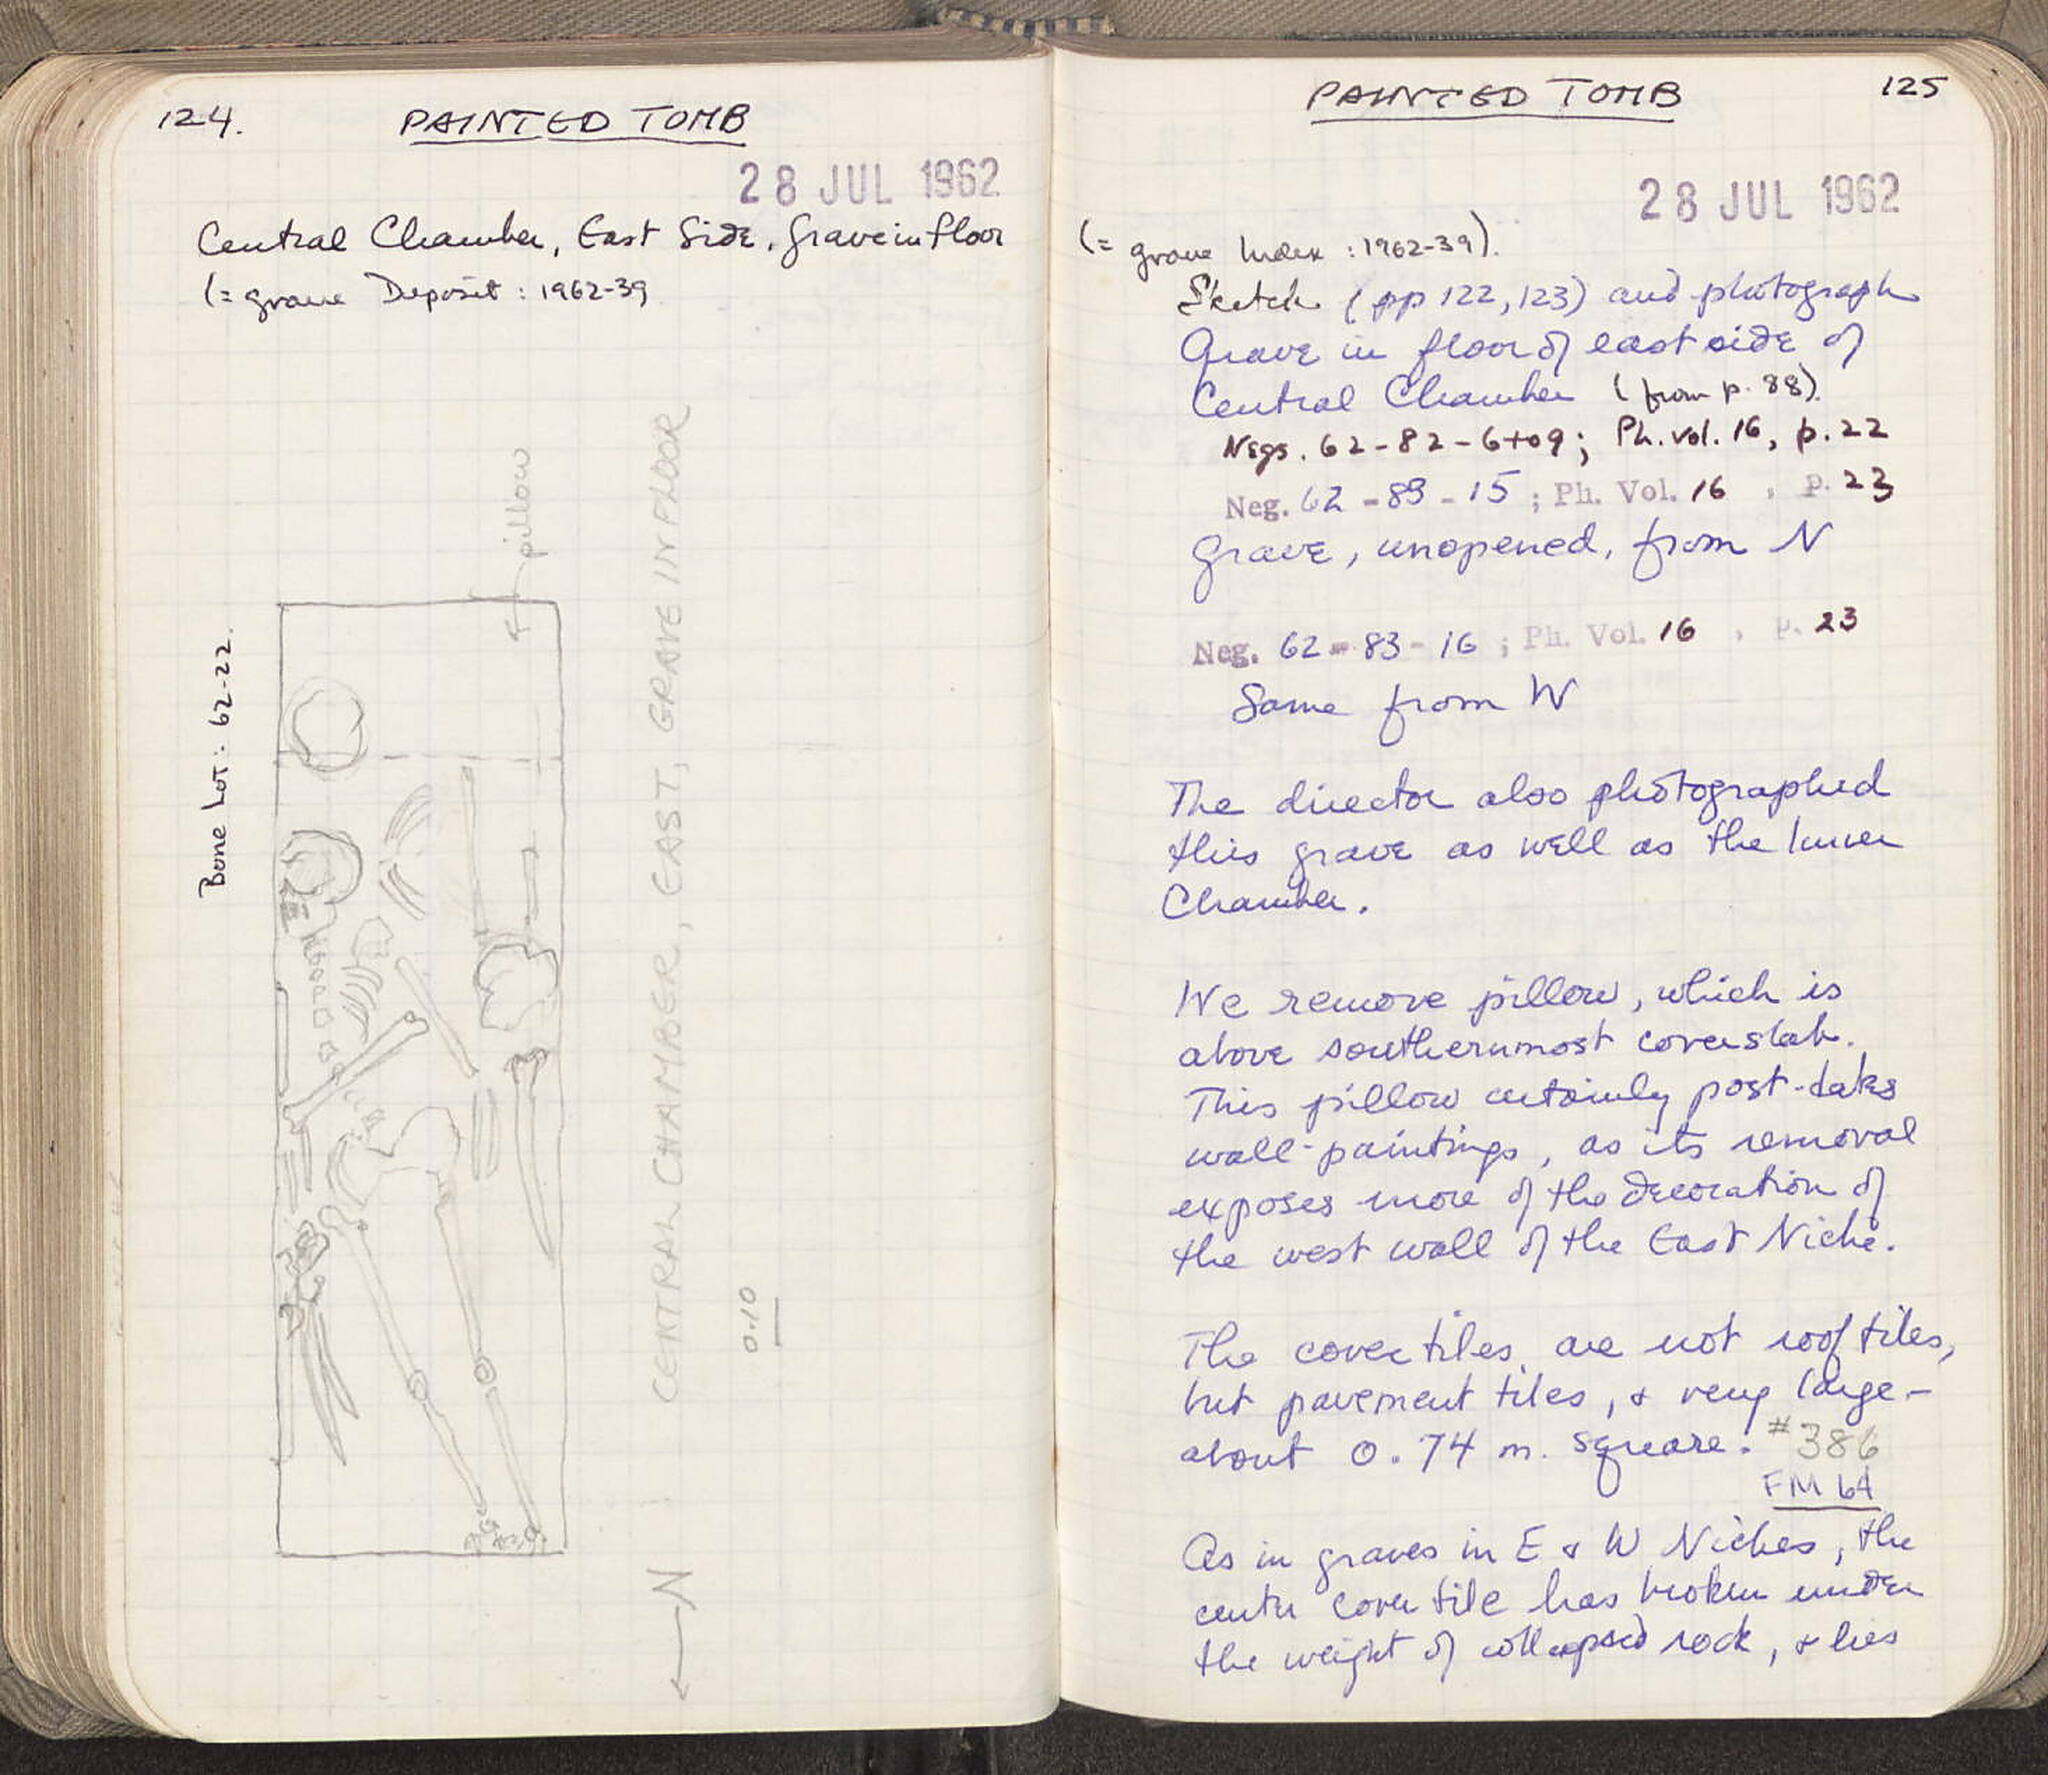 124. PAINTED TOMB
28 JUL 1962
Central Chamber, East Side, Grave in floor
(= grave Deposit : 1962-39
pillow
Bone Lot: 62-22.
CENTRAL CHAMBER, EAST, GRAVE IN FLOOR
0.10
N
PAINTED TOMB 125
28 JUL 1962
(= grave Index : 1962-39).
Sketch (pp 122, 123) and photograph
Grave in floor of east side of
Central Chamber (from p. 88).
Negs. 62-82-6 to 9; Ph. vol. 16, p. 22
Neg. 62-83-15 ; Ph. Vol. 16 , p. 23
Grave, unopened, from N
Neg. 62-83-16 ; Ph. Vol. 16 , p. 23
Same from W
The director also photographed
this grave as well as the Inner
Chamber.
We remove pillow, which is
above southernmost cover slab.
This pillow certainly post-dates
wall-paintings, as its removal
exposes more of the decoration of
the west wall of the East Niche.
The cover tiles are not roof tiles,
but pavement tiles, & very large -
about 0.74 m. square. #386
FM 64
As in graves in E & W Niches, the
center cover tile has broken under
the weight of collapsed rock, & lies